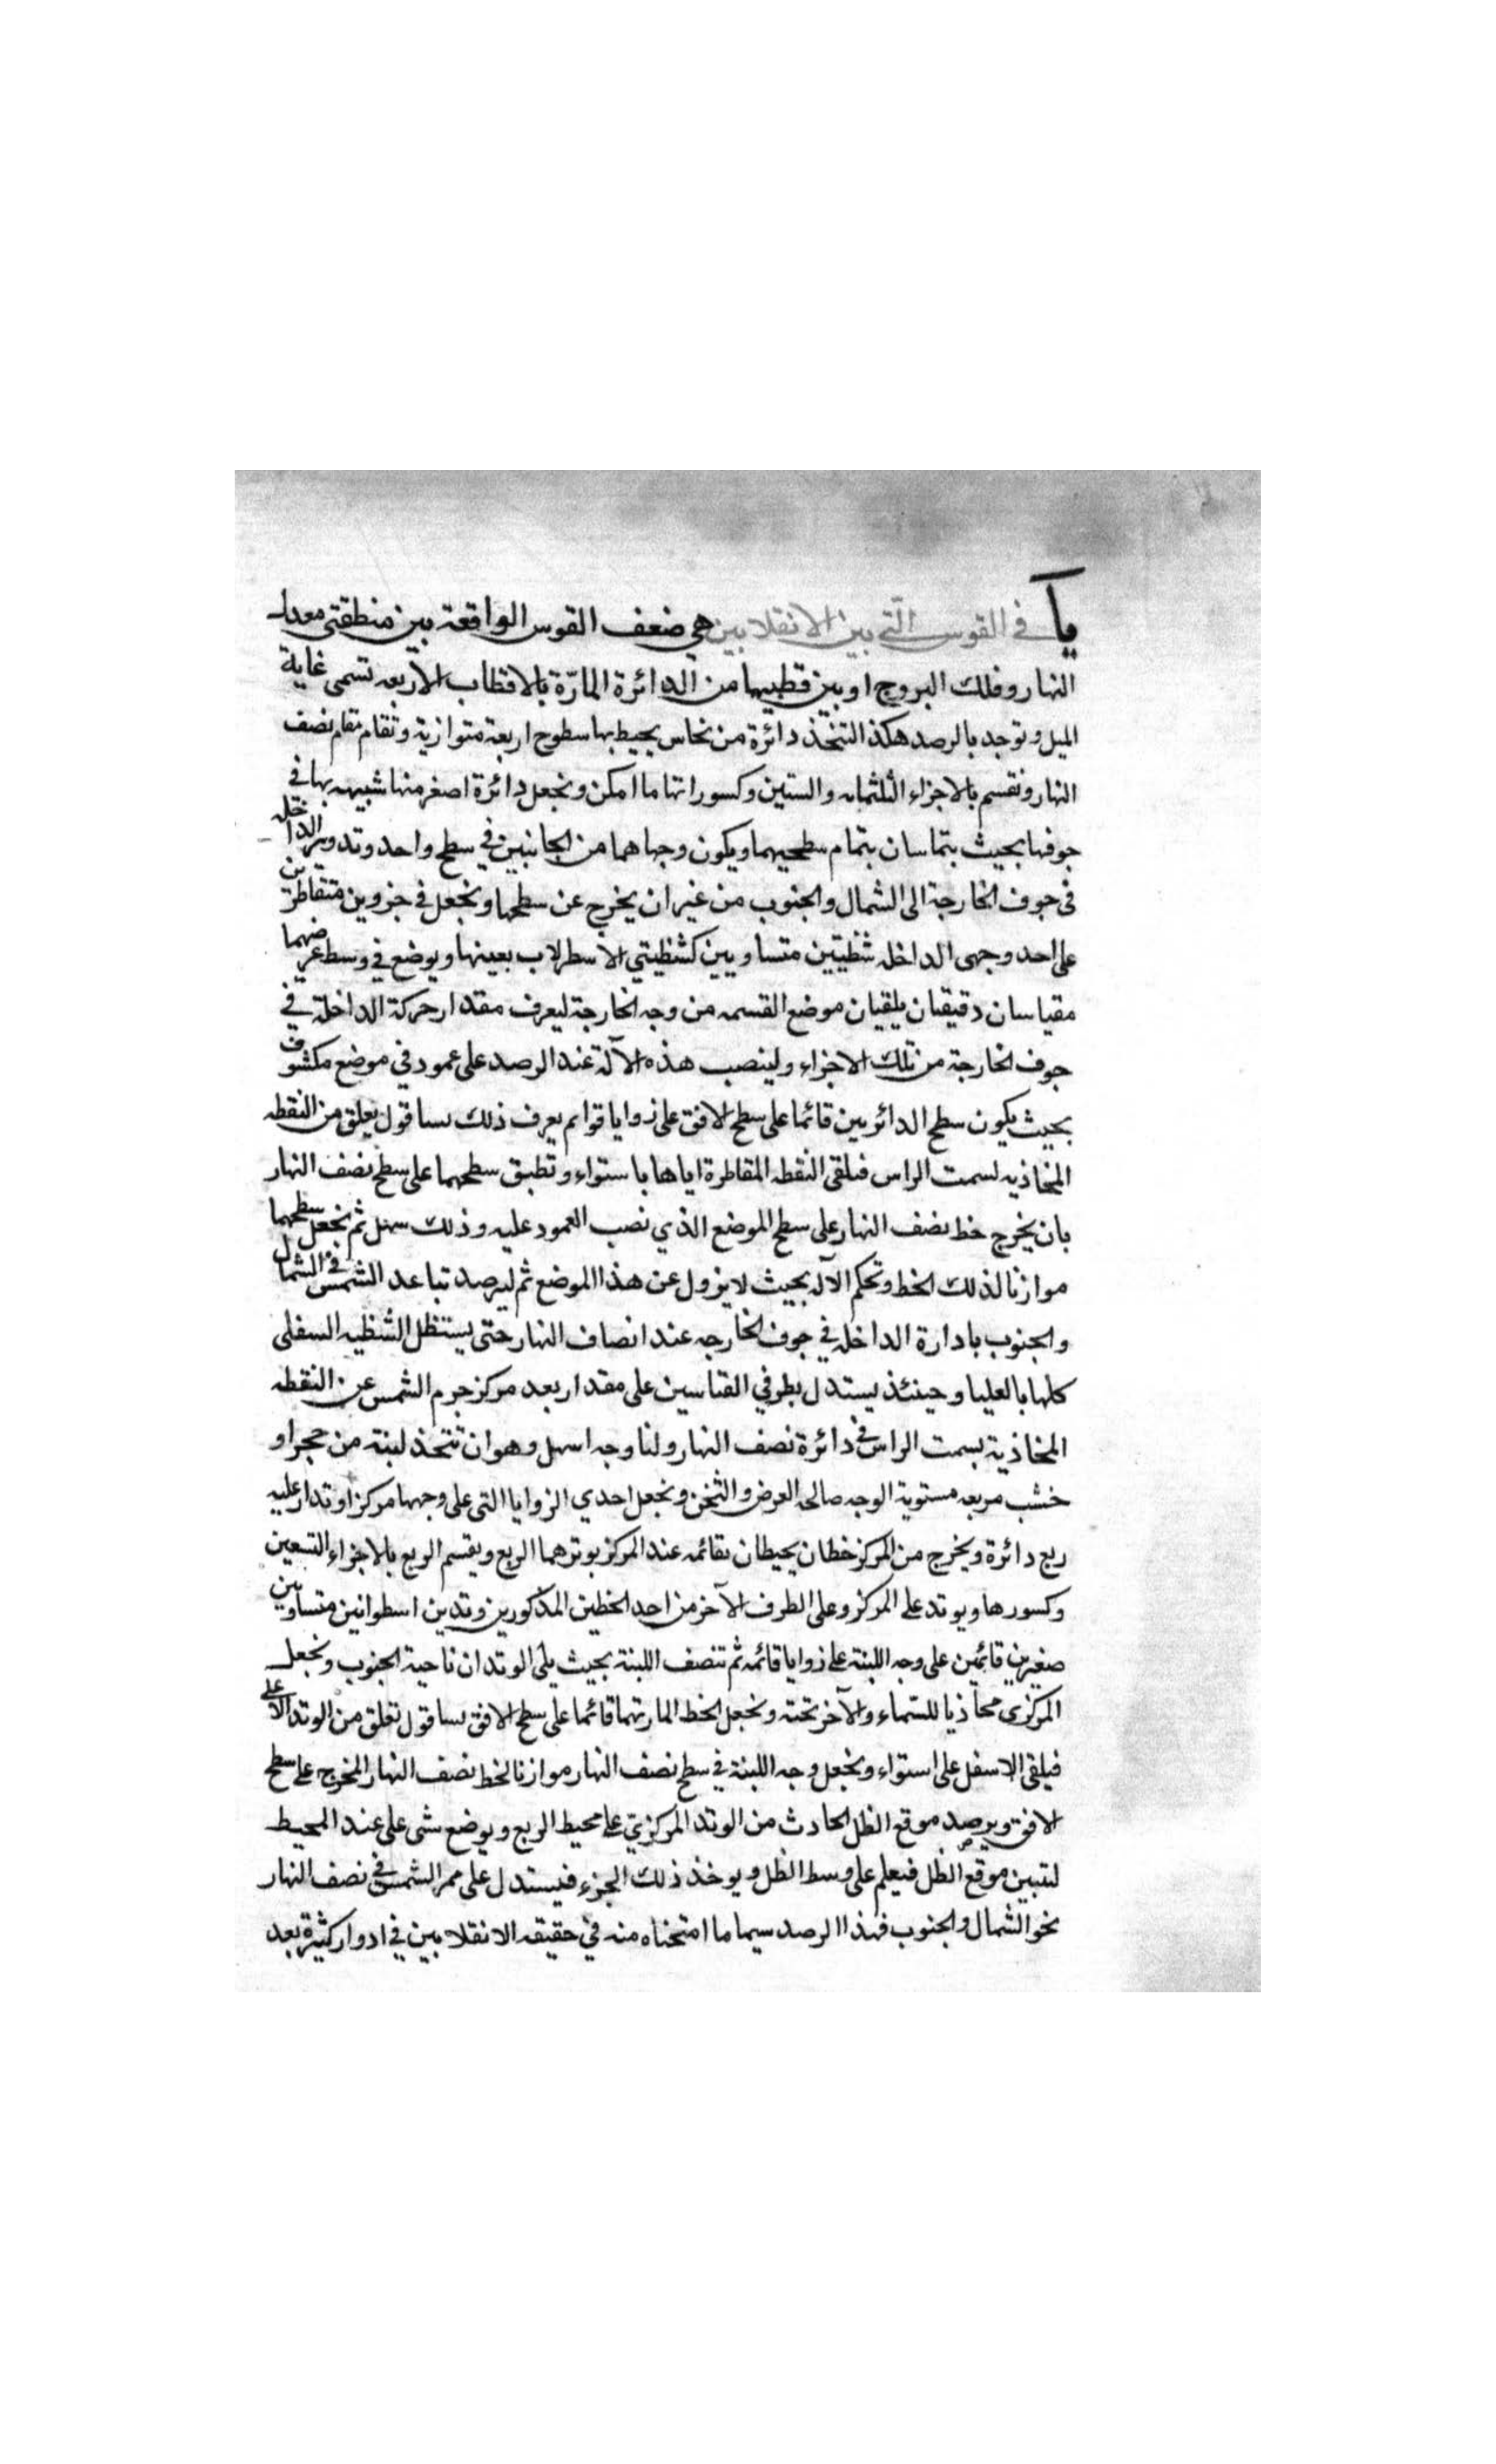 يا في القوس التي بين الانقلابين هي ضعف القوس الواقعة بين منطقتي معدل
النهار وفلك البروج او بين قطبيهما من الدائرة المارّة بالاقطاب الاربعه تسمى غاية
الميل وتوجد بالرصد هكذا لتتخذ دائرة من نحاس يحيط بها سطوح اربعة متوازية وتقام مقام نصف
النهار ونقسم بالاجزاء الثلثمايه والستين وكسوراتها ما امكن ونجعل دائرة اصغر منها شبيهه بها في
جوفها بحيث يتماسان بتمام سطحيهما ويكون وجهاهما من الجانبين في سطح واحد وتدور الداخله
في جوف الخارجة الى الشمال والجنوب من غير ان يخرج عن سطحها ونجعل في جزوين متقاطرين
على احد وجهى الداخله شظيتين متساويين كشظيتي الاسطرلاب بعينها ويوضع في وسط عرضهما
مقياسان دقيقان يلقيان موضع القسمه من وجه الخارجة ليعرف مقدار حركة الداخلة في
جوف الخارجة من تلك الاجزاء ولينصب هذه الآلة عند الرصد على عمود في موضع مكشوف
بحيث يكون سطح الدائريين قائما على سطح الافق على زوايا قوايم يعرف ذلك بساقول يعلق من النقطه
المحاذيه لسمت الراس فيلقى النقطه المقاطرة اياها باستواء وتطبق سطحهما على سطح نصف النهار
بان يخرج خط نصف النهار على سطح الموضع الذي نصب العمود عليه وذلك سهل ثم نجعل سطحهما
موازنا لذلك الخط وتحكم الآله بحيث لا يزول عن هذا الموضع ثم ليرصد تباعد الشمس في الشمال
والجنوب بادارة الداخله في جوف الخارجه عند انصاف النهار حتى يستظل الشظيه السفلى
كلها بالعليا وحينئذ يستدل بطرفي القياسين على مقدار بعد مركز جرم الشمس عن النقطه
المحاذية بسمت الراس في دائرة نصف النهار ولنا وجه اسهل وهو ان تتخذ لبنة من حجر او
خشب مربعه مستوية الوجه صالحه العرض والثخن ونجعل احدي الزوايا التى على وجهها مركزا وتدار عليه
ربع دائرة ويخرج من المركز خطان يحيطان بقائمه عند المركز يوترهما الربع ويقسم الربع بالاجزاء التسعين
وكسورها ويوتد على المركز وعلى الطرف الآخر من احد الخطين المذكورين وتدين اسطوانين متساويين
صغيرين قائمين على وجه اللبنة على زوايا قائمه ثم تنصف اللبنة بحيث يلى الوتدان ناحية الجنوب ونجعل
المركزى محاذيا للسّماء والآخر تحته ونجعل الخط المار بهما قائما على سطح الافق بساقول تعلق من الوتد الاعلى
فيلقى الاسفل على استواء ونجعل وجه اللبنة في سطح نصف النهار موازنا لخط نصف النهار المخرج على سطح
الافق ويرصد موقع الظل الحادث من الوتد المركزيّ على محيط الربع ويوضع شى على عند المحيط
لتبين موقع الظل فيعلم على وسط الظل ويوخذ ذلك الجزء فيستدل على ممر الشمس في نصف النهار
نحو الشمال والجنوب فهذا الرصد سيما ما امتحناه منه في حقيقه الانقلابين في ادوار كثيرة بعد